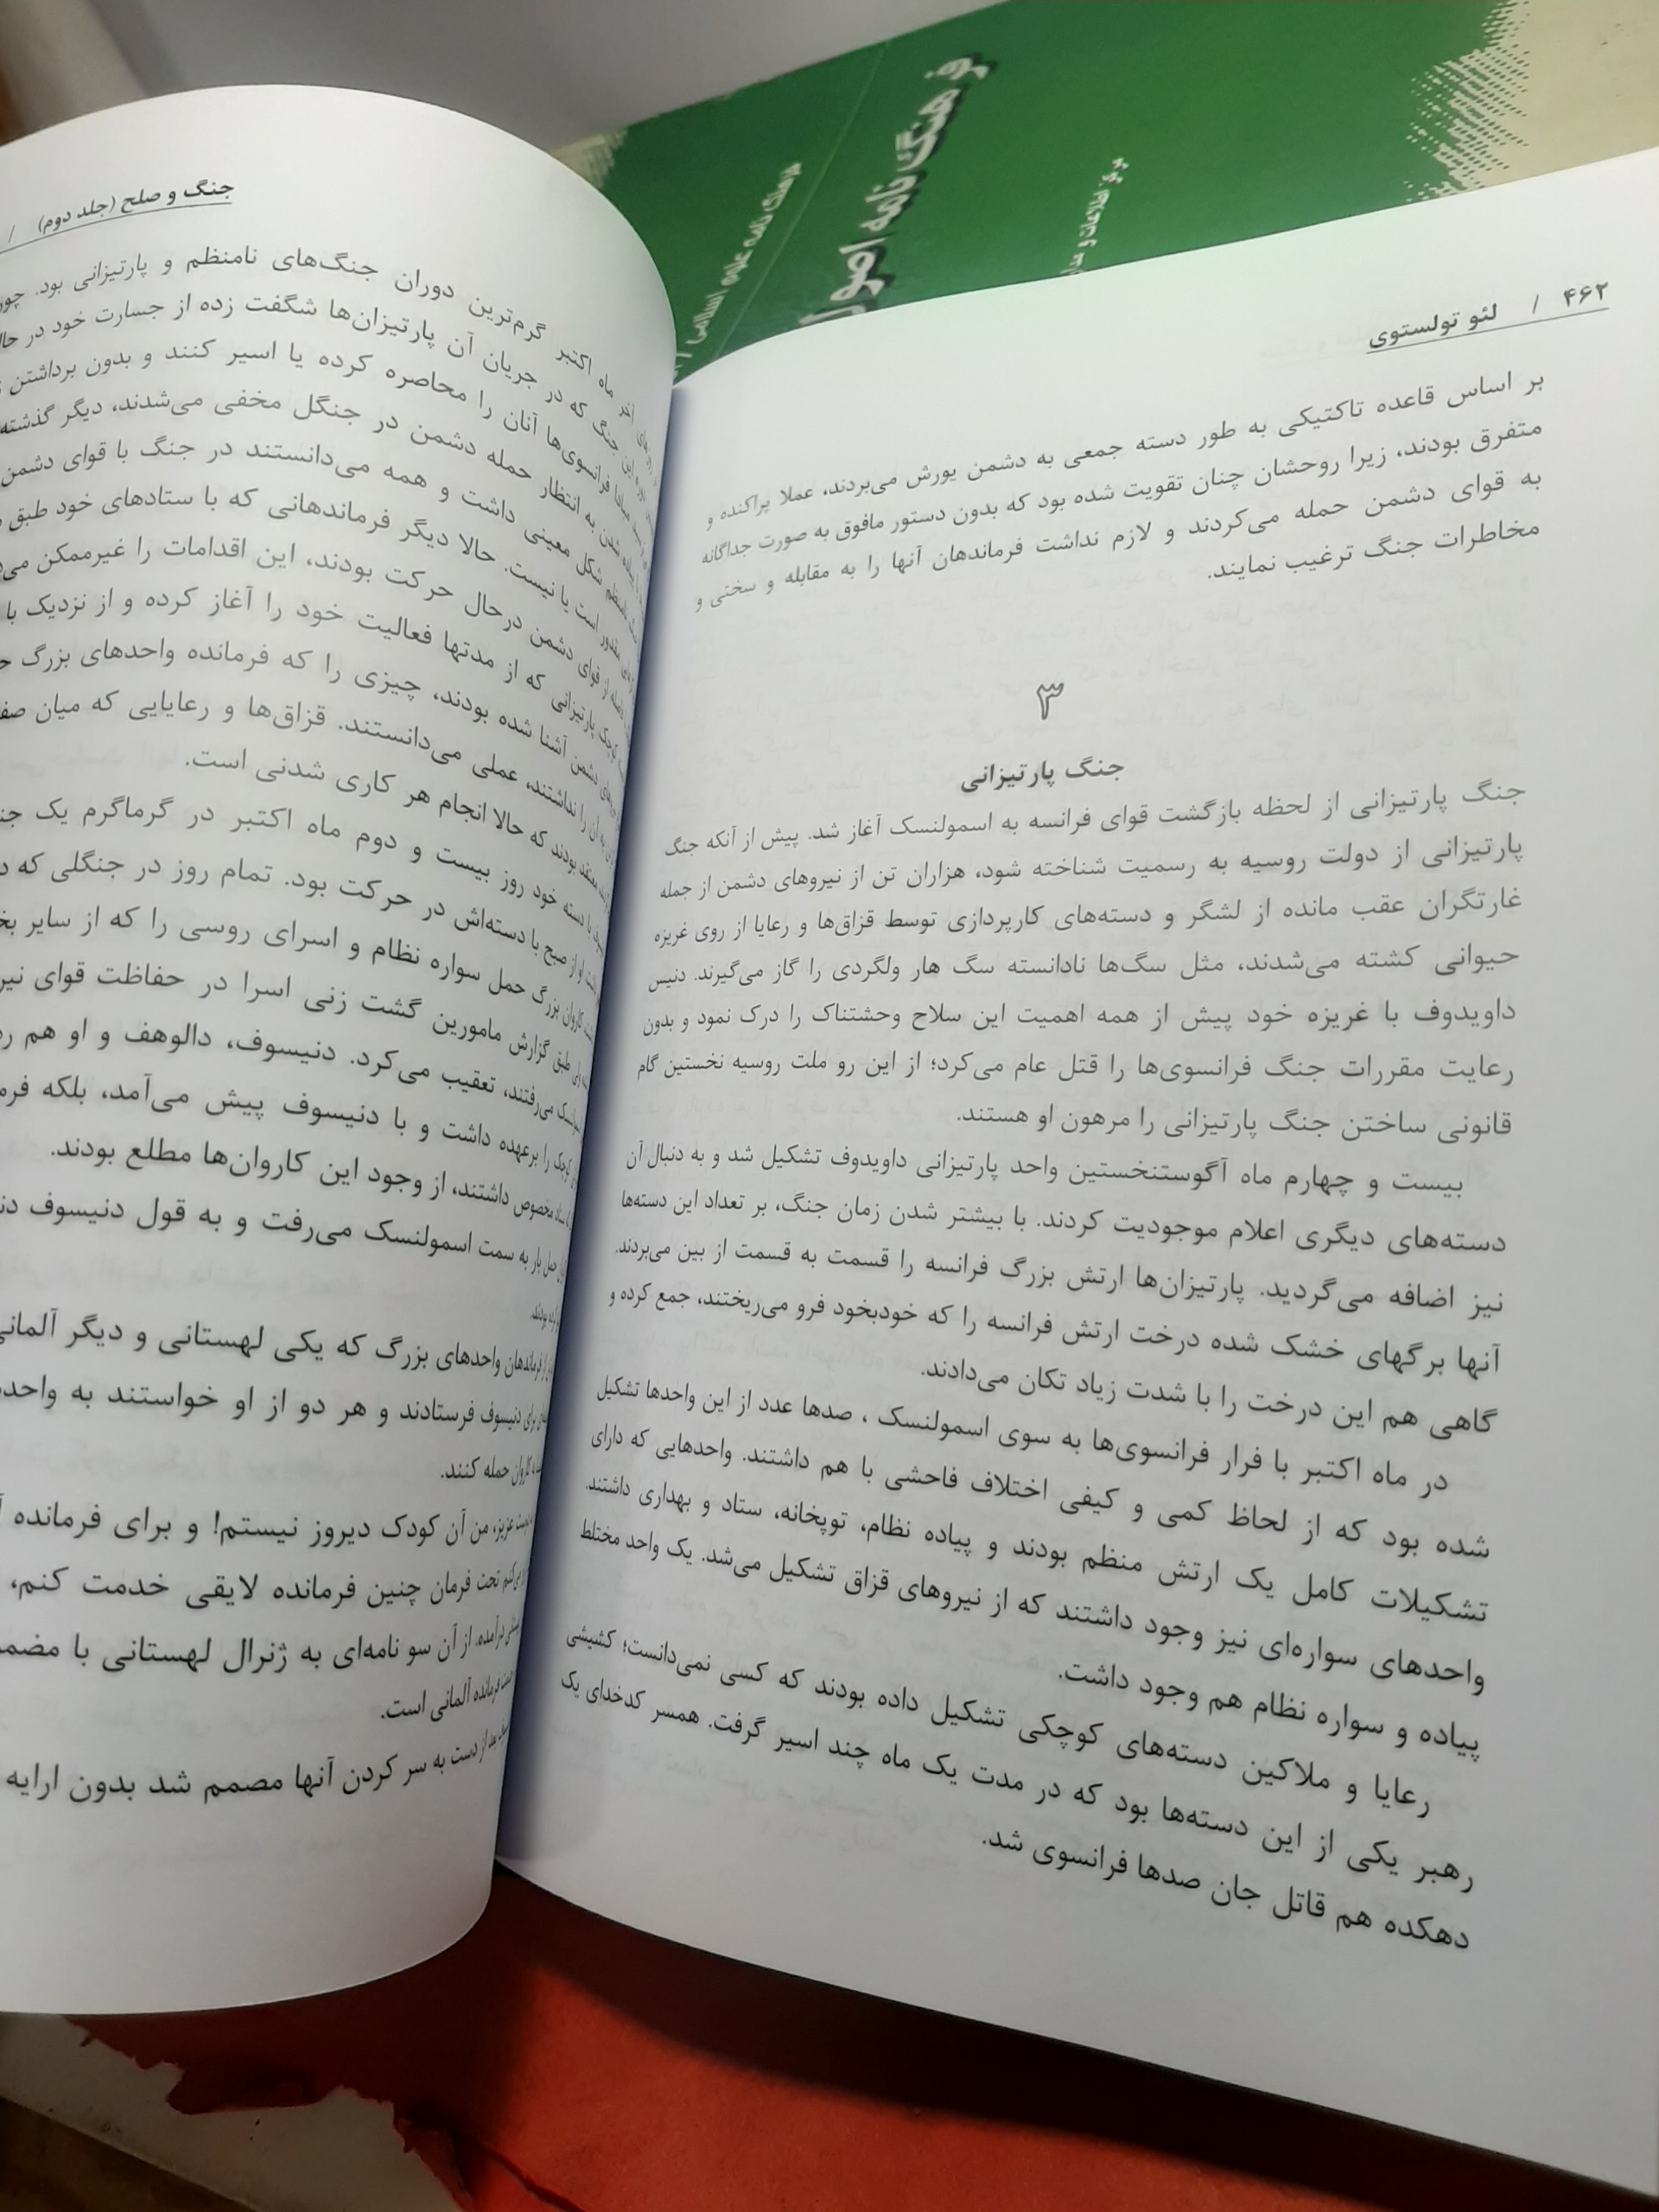 ۴۶۲ / لئو تولستوی
بر اساس قاعده تاکتیکی به طور دسته جمعی به دشمن یورش می‌بردند، عملا پراکنده و
متفرق بودند، زیرا روحشان چنان تقویت شده بود که بدون دستور مافوق به صورت جداگانه
به قوای دشمن حمله می‌کردند و لازم نداشت فرماندهان آنها را به مقابله و سختی و
مخاطرات جنگ ترغیب نمایند.
۳
جنگ پارتیزانی
جنگ پارتیزانی از لحظه بازگشت قوای فرانسه به اسمولنسک آغاز شد. پیش از آنکه جنگ
پارتیزانی از دولت روسیه به رسمیت شناخته شود، هزاران تن از نیروهای دشمن از جمله
غارتگران عقب مانده از لشگر و دسته‌های کارپردازی توسط قزاق‌ها و رعایا از روی غریزه
حیوانی کشته می‌شدند، مثل سگ‌ها نادانسته سگ هار ولگردی را گاز می‌گیرند. دنیس
داویدوف با غریزه خود پیش از همه اهمیت این سلاح وحشتناک را درک نمود و بدون
رعایت مقررات جنگ فرانسوی‌ها را قتل عام می‌کرد؛ از این رو ملت روسیه نخستین گام
قانونی ساختن جنگ پارتیزانی را مرهون او هستند.
بیست و چهارم ماه آگوستنخستین واحد پارتیزانی داویدوف تشکیل شد و به دنبال آن
دسته‌های دیگری اعلام موجودیت کردند. با بیشتر شدن زمان جنگ، بر تعداد این دسته‌ها
نیز اضافه می‌گردید. پارتیزان‌ها ارتش بزرگ فرانسه را قسمت به قسمت از بین می‌بردند.
آنها برگهای خشک شده درخت ارتش فرانسه را که خودبخود فرو می‌ریختند، جمع کرده و
گاهی هم این درخت را با شدت زیاد تکان می‌دادند.
در ماه اکتبر با فرار فرانسوی‌ها به سوی اسمولنسک ، صدها عدد از این واحدها تشکیل
شده بود که از لحاظ کمی و کیفی اختلاف فاحشی با هم داشتند. واحدهایی که دارای
تشکیلات کامل یک ارتش منظم بودند و پیاده نظام، توپخانه، ستاد و بهداری داشتند.
واحدهای سواره‌ای نیز وجود داشتند که از نیروهای قزاق تشکیل می‌شد. یک واحد مختلط
پیاده و سواره نظام هم وجود داشت.
رعایا و ملاکین دسته‌های کوچکی تشکیل داده بودند که کسی نمی‌دانست؛ کشیشی
رهبر یکی از این دسته‌ها بود که در مدت یک ماه چند اسیر گرفت. همسر کدخدای یک
دهکده هم قاتل جان صدها فرانسوی شد.
جنگ و صلح (جلد دوم) /
آخر ماه اکتبر گرم‌ترین دوران جنگ‌های نامنظم و پارتیزانی بود.
این جنگ که در جریان آن پارتیزان‌ها شگفت زده از جسارت خود در
مبادا فرانسوی‌ها آنان را محاصره کرده یا اسیر کنند و بدون برداشتن
شدن به انتظار حمله دشمن در جنگل مخفی می‌شدند، دیگر گذشته
شکل معینی داشت و همه می‌دانستند در جنگ با قوای دشمن
است یا نیست. حالا دیگر فرماندهانی که با ستادهای خود طبق
از قوای دشمن درحال حرکت بودند، این اقدامات را غیرممکن
کوچک پارتیزانی که از مدتها فعالیت خود را آغاز کرده و از نزدیک با
دشمن آشنا شده بودند، چیزی را که فرمانده واحدهای بزرگ
به آن را نداشتند، عملی می‌دانستند. قزاق‌ها و رعایایی که میان
معتقد بودند که حالا انجام هر کاری شدنی است.
با دسته خود روز بیست و دوم ماه اکتبر در گرماگرم یک
او از صبح با دسته‌اش در حرکت بود. تمام روز در جنگلی که
کاروان بزرگ حمل سواره نظام و اسرای روسی را که از سایر
طبق گزارش مامورین گشت زنی اسرا در حفاظت قوای
می‌رفتند، تعقیب می‌کرد. دنیسوف، دالوهف و او هم
کوچک را برعهده داشت و با دنیسوف پیش می‌آمد، بلکه
مخصوص داشتند، از وجود این کاروان‌ها مطلع بودند.
حمل بار به سمت اسمولنسک می‌رفت و به قول دنیسوف
بودند.
از فرماندهان واحدهای بزرگ که یکی لهستانی و دیگر آلمانی
برای دنیسوف فرستادند و هر دو از او خواستند به
کاروان حمله کنند.
عزیز، من آن کودک دیروز نیستم! و برای فرمانده
تحت فرمان چنین فرمانده لایقی خدمت کنم،
درآمده. از آن سو نامه‌ای به ژنرال لهستانی با
فرمانده آلمانی است.
بعد از دست به سر کردن آنها مصمم شد بدون ارایه
فرهنگ نامه اصول
فرهنگ نامه علوم اسلامی
مرکز اطلاعات و